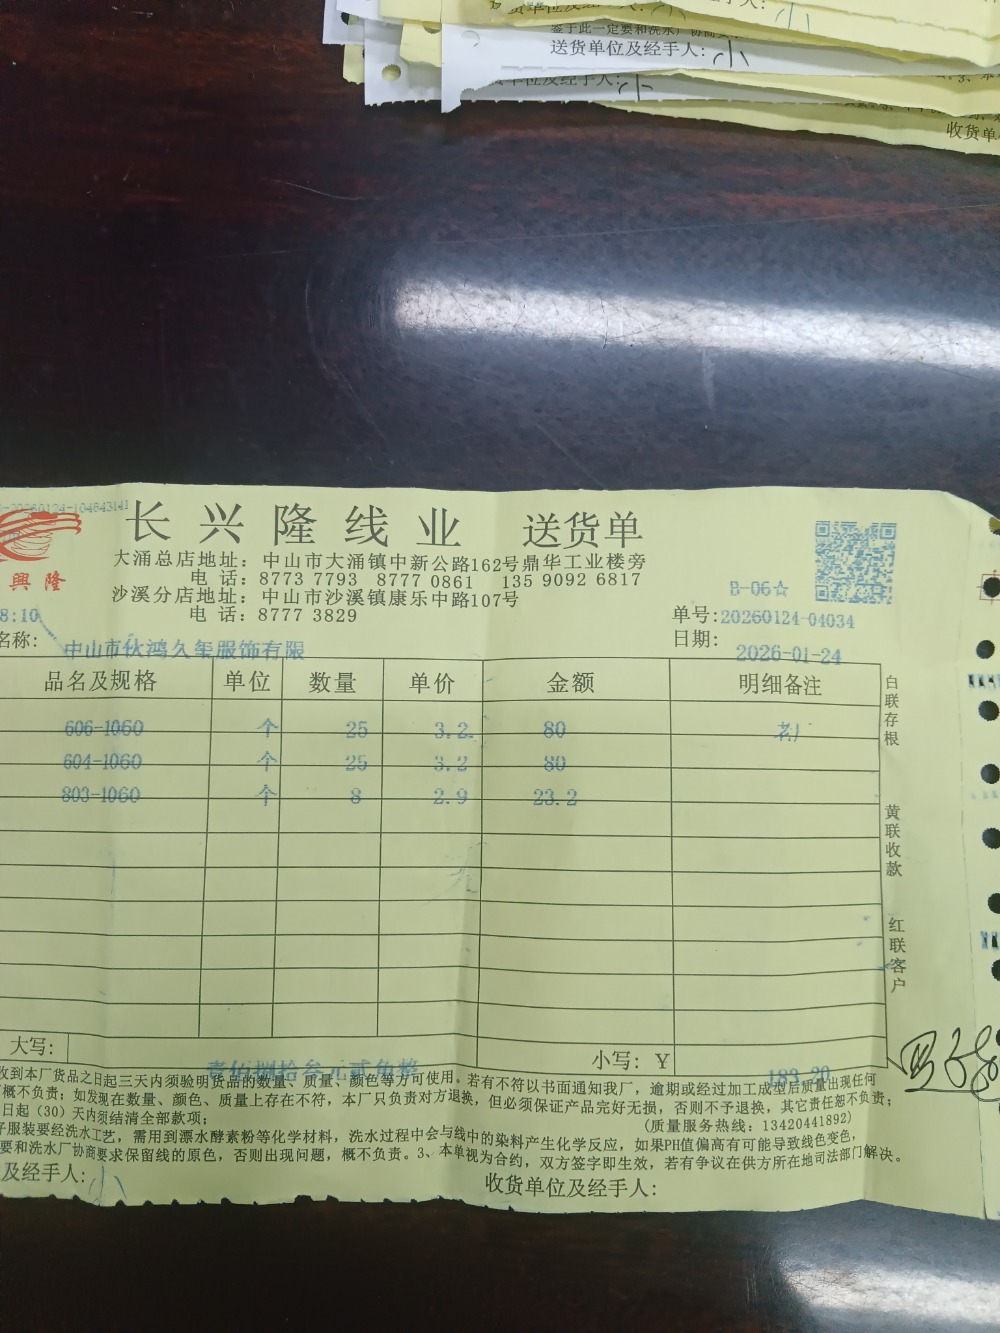 鉴于此一定要和洗水厂协商要
送货单位及经手人: 小
单位及经手人: 小
收货单
20260124-104643141
长兴隆线业 送货单
興隆
大涌总店地址: 中山市大涌镇中新公路162号鼎华工业楼旁
电 话: 8773 7793 8777 0861 135 9092 6817
沙溪分店地址: 中山市沙溪镇康乐中路107号
电 话: 8777 3829
B-06☆
8:10
单号: 20260124-04034
名称: 中山市伙鸿久玺服饰有限
日期: 2026-01-24
品名及规格 单位 数量 单价 金额 明细备注
606-1060 个 25 3.2 80
604-1060 个 25 3.2 80
803-1060 个 8 2.9 23.2
白联存根
黄联收款
红联客户
大写: 壹佰捌拾叁元贰角整 小写: Y 183.20
收到本厂货品之日起三天内须验明货品的数量、质量、颜色等方可使用。若有不符以书面通知我厂, 逾期或经过加工成型后质量出现任何
概不负责; 如发现在数量、颜色、质量上存在不符, 本厂只负责对方退换, 但必须保证产品完好无损, 否则不予退换, 其它责任恕不负责;
日起 (30) 天内须结清全部款项; (质量服务热线: 13420441892)
服装要经洗水工艺, 需用到漂水酵素粉等化学材料, 洗水过程中会与线中的染料产生化学反应, 如果PH值偏高有可能导致线色变色,
要和洗水厂协商要求保留线的原色, 否则出现问题, 概不负责。3、本单视为合约, 双方签字即生效, 若有争议在供方所在地司法部门解决。
及经手人: 小 收货单位及经手人: